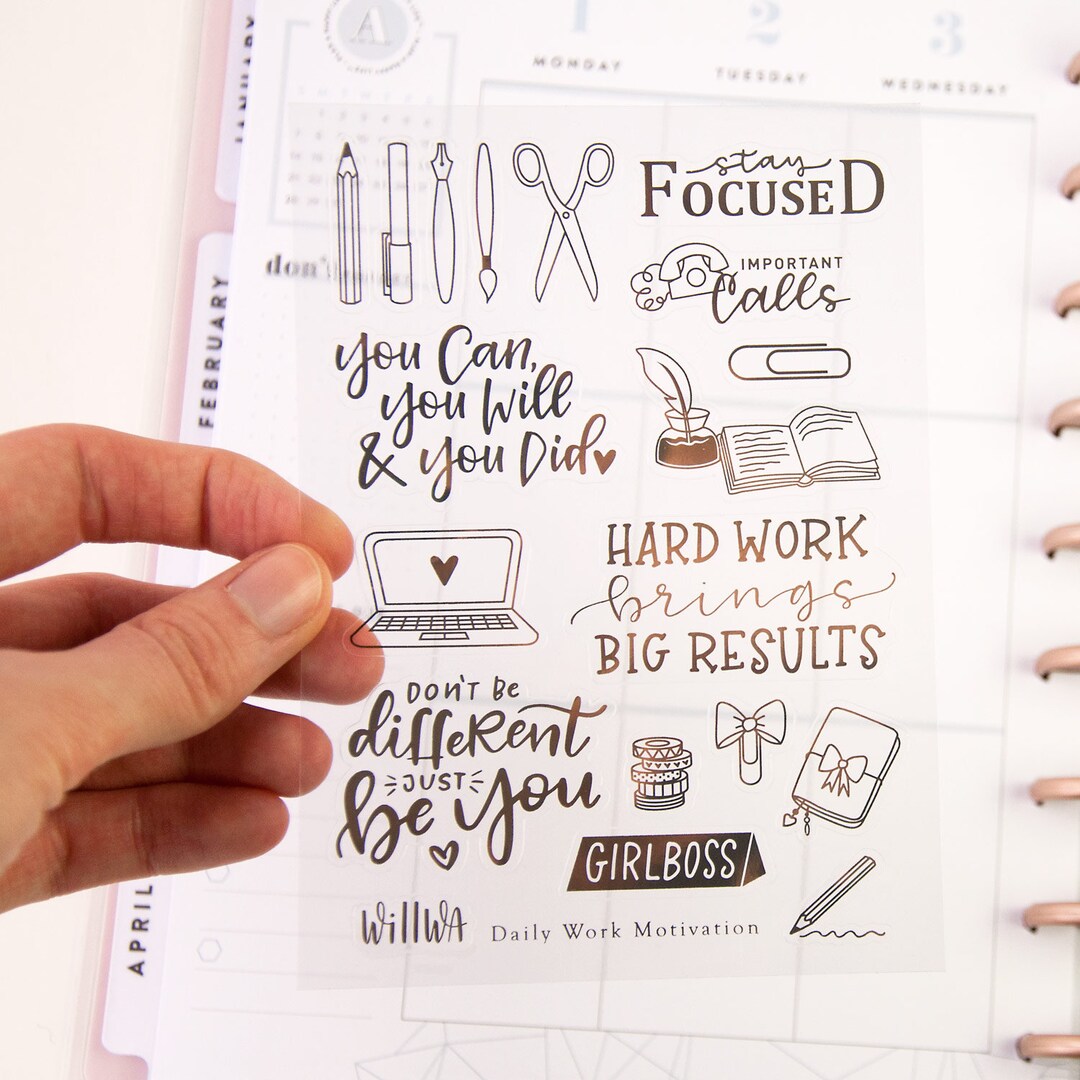 JANUARY
FEBRUARY
APRIL
A
1
2
3
MONDAY
TUESDAY
WEDNESDAY
don't
stay
FOCUSED
IMPORTANT
Calls
you Can,
you Will
& you Did
HARD WORK
brings
BIG RESULTS
DON'T BE
different
JUST
be you
GIRLBOSS
WillWA
Daily Work Motivation